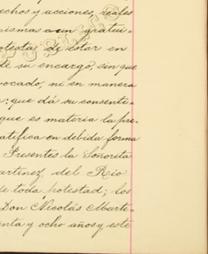 echos y acciones, reales
mismas a un gratui-
otesta de estar en
de su encargo, sin que
vocado, ni en manera
que dá su consenti-
que es materia la pre-
atifica en debida forma
Presentes la Señorita
artinez del Rio
de toda potestad; los
Don Nicolás Marti-
enta y ocho años y este